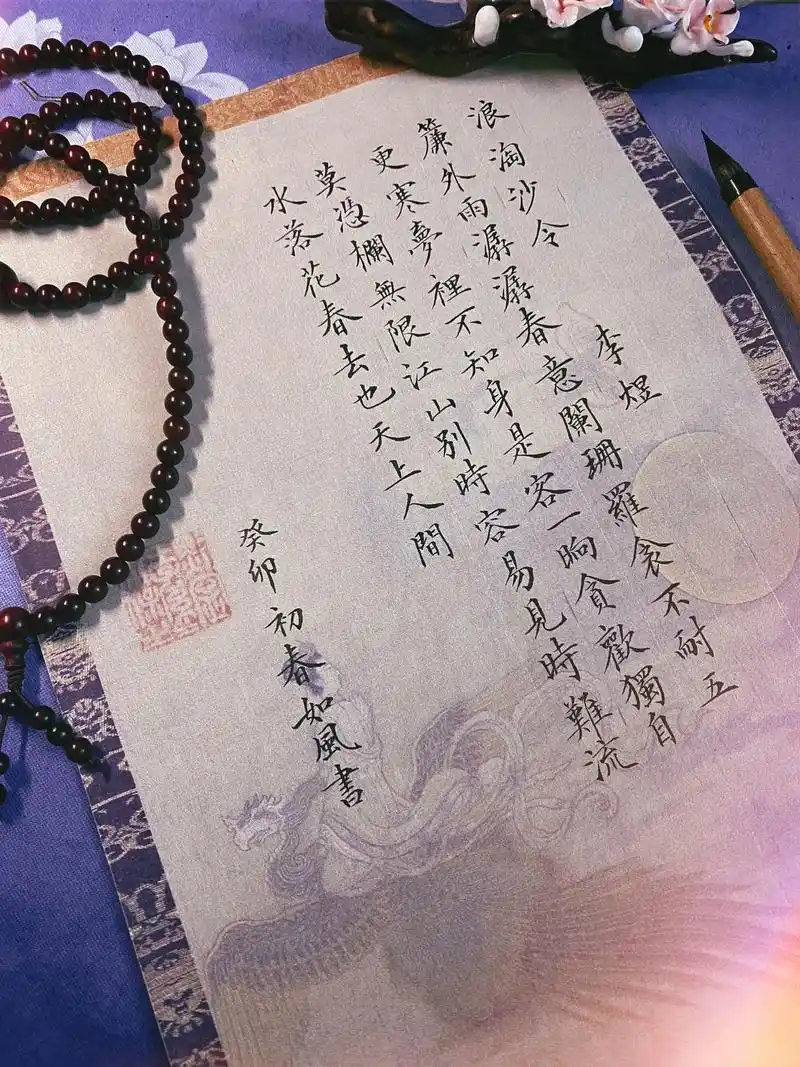 浪淘沙令 李煜
簾外雨潺潺春意闌珊羅衾不耐五
更寒夢裡不知身是客一晌貪歡獨自
莫憑欄無限江山別時容易見時難流
水落花春去也天上人間
癸卯初春如風書